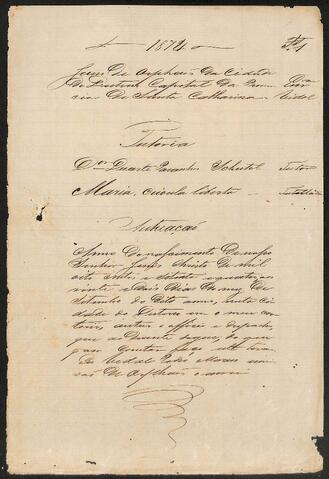 1874
Fl. 1
Juizo de Orphãos da Cidade
do Desterro Capital da Provin
cia de Santa Catharina
Vidal
Tutoria
Dor Duarte Paranhos Schutel Tutor
Maria, crioula liberta Tutellada
Autuação
Anno do nascimento de nosso
Senhor Jesus Christo de mil
oito centos e setenta e quatro, aos
vinte e dois dias do mez de
Setembro do dito anno, nesta Ci
dade do Desterro em o meu car
torio, autuo o officio e despacho,
que ao deante segue, do que
para constar faço esta
Vidal Pedro Moraes escri
vão de Orphãos o escrevi